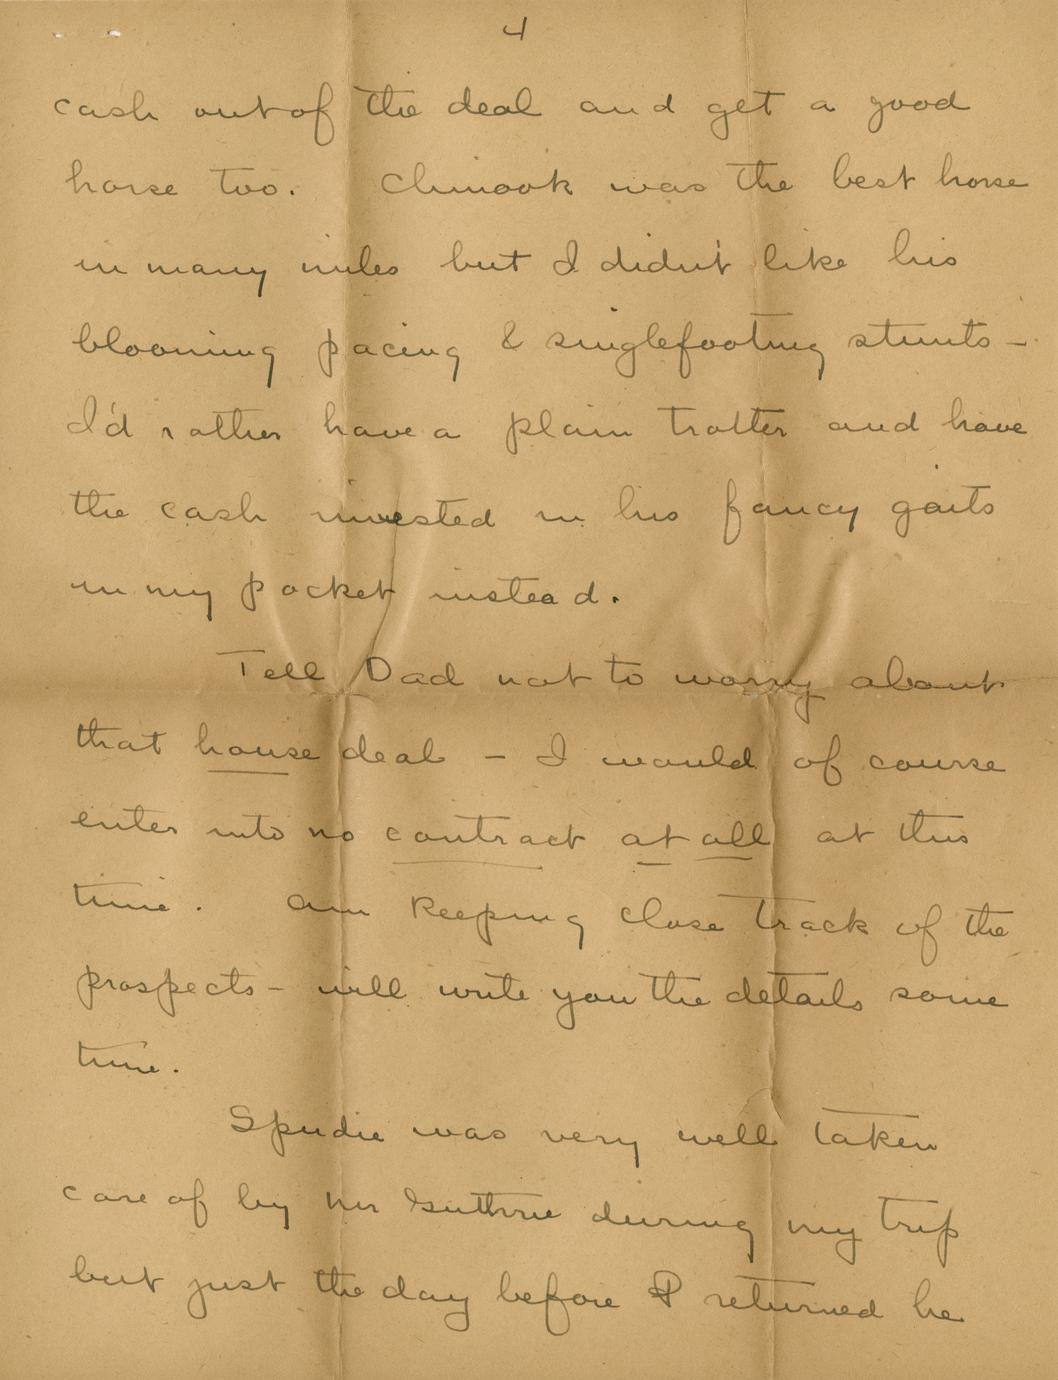 4
cash out of the deal and get a good
horse too. Chinook was the best horse
in many miles but I didn't like his
blooming pacing & singlefooting stunts -
I'd rather have a plain trotter and have
the cash invested in his fancy gaits
in my pocket instead.
Tell Dad not to worry about
that house deal - I would of course
enter into no contract at all at this
time. Am keeping close track of the
prospects - will write you the details some
time.
Spudie was very well taken
care of by Mr Guthrie during my trip
but just the day before I returned he